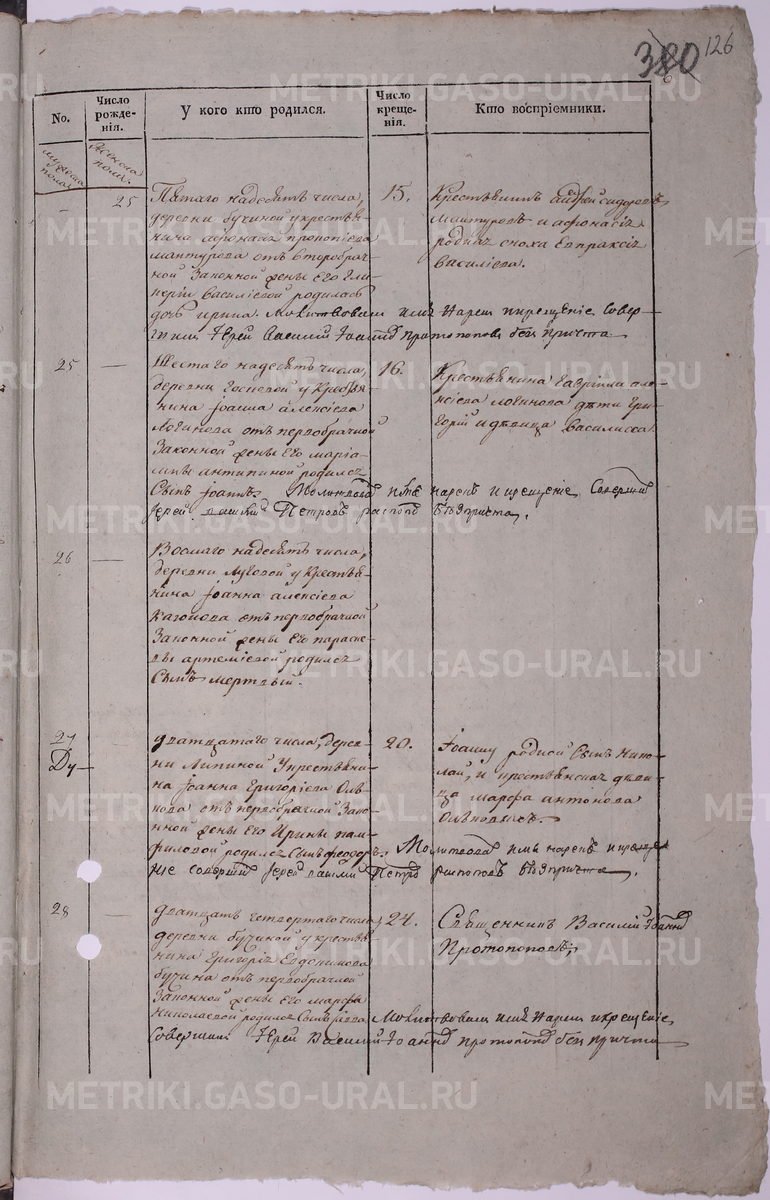 380 126
No.
Число рожденія.
У кого кто родился.
Число крещенія.
Кто воспріемники.
мужеска пола
женска пола
25
Пятаго надесять числа,
деревни бучиной у крестья-
нина афонасія
мантурова отъ второбрач-
ной Законной жены Его Гли-
керіи василіевой родилась
дочь ирина. Молитвовали имя Нарек и крещеніе Совер-
шил Іерей Василий Іоаннов протопопов без причта
15.
Крестьянинъ сидоровъ
мантуровъ и афонасія
родная сноха Евпраксія
василіева.
25
Шестаго надесять числа,
деревни у Крестья-
нина Іоанна алексіева
Логинова отъ первобрачной
Законной жены Его маріа-
мны антипиной родился
Сынъ Іоаннъ. Молитвовал имя нарек и крещеніе Совершил
Іерей Петровъ распопов безпричта.
16.
Крестьянина гавріила але-
ксіева логинова дети гри-
горій и девица василисса
26
Восмаго надесять числа,
деревни у Крестья-
нина Іоанна алексіева
отъ первобрачной
Законной жены Его параске-
вы артеміевой родился
Сынъ мертвый.
27
Ду
дватцатаго числа, дерев-
ни Липиной у крестьяни-
на Іоанна Григоріева
отъ первобрачной Зако-
нной жены Его Ирины пам-
филовой родился Сынъ феодоръ. Молитвовал имя нарек и креще-
ніе совершил Іерей Петров распопов безпричта.
20.
Іоанну родной Сынъ Нико-
лай, и крестьянская деви-
ца марфа антонова
28
дватцать четвертаго числа,
деревни бучиной у крестья-
нина Григорія Евдокимова
бучина отъ первобрачной
Законной жены Его марфы
николаевой родился Сынъ Савва Молитвовали имя Нарек и крещеніе
Совершил Іерей Василий Іоаннов протопопов без причта
24.
Священникъ Василий Іоаннов
Протопоповъ,
METRIKI.GASO-URAL.RU